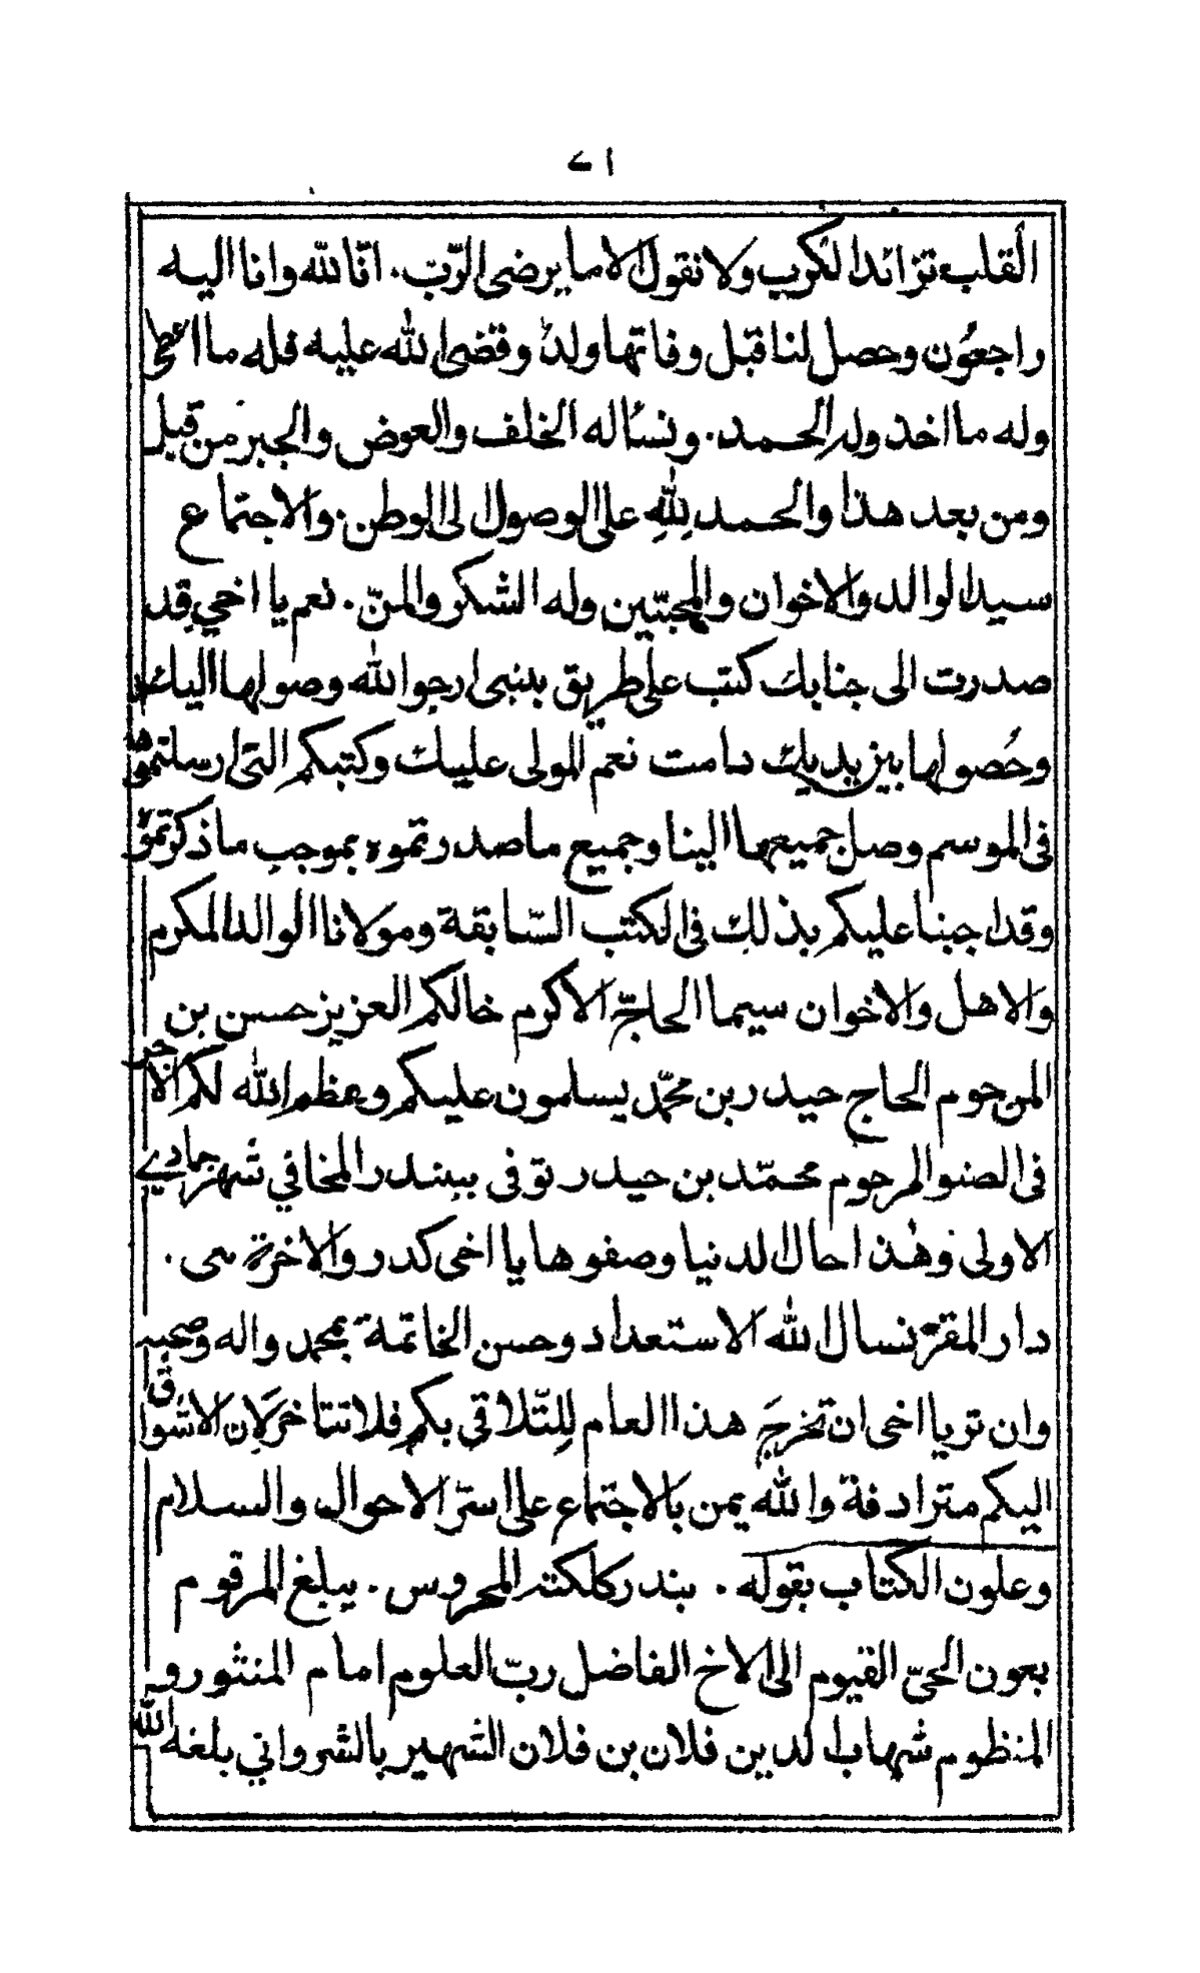 ٧١
القلب تزائد الكرب ولا نقول الا ما يرضى الرّب. انّا لله وانا اليه
راجعون وحصل لنا قبل وفاتها ولدٌ وقضى الله عليه فله ما اعطى
وله ما اخذ وله الحمد. ونسأله الخلف والعوض والجبر من قبل
ومن بعد هذا والحمد للهِ على الوصول الى الوطن. والاجتماع
سيدا لوالد والاخوان والمحبّين وله الشكر والمنّ. نعم يا اخي قد
صدرت الى جنابك كتب على طريق بنبى ارجو الله وصولها اليك
وحُصولها بين يديك دامت نعم المولى عليك وكتبكم التى ارسلتموها
فى الموسم وصل جميعها الينا وجميع ما صدرتموه بموجب ما ذكرتموه
وقد اجبنا عليكم بذلك فى الكتب السّابقة ومولانا الوالد المكرم
والاهل والاخوان سيما الحاجّ الاكرم خالكم العزيز حسن بن
المرحوم الحاج حيدر بن محمّد يسلمون عليكم وعظم الله لكم الاجر
فى الصنو المرحوم محمّد بن حيدر توفى ببندر المخا في شهر جمادي
الاولى وهٰذا حال الدنيا وصفوها يا اخى كدر والاخرة هى.
دار المقر نسال الله الاستعداد وحسن الخاتمة بمحمد واله وصحبه
وان تر يا اخى ان تخرجَ هذا العام للِتّلاقي بكم فلا تتاخر لان الاشواق
اليكم مترادفة والله يمن بالاجتماع على اسرّ الاحوال والسلام
وعلون الكتاب بقوله. بندر كلكته المحروس. يبلغ المرقوم
بعون الحىّ القيوم الى الاخ الفاضل ربّ العلوم امام المنثور و
المنظوم شهاب الدين فلان بن فلان الشهير بالشرواني بلغه الله